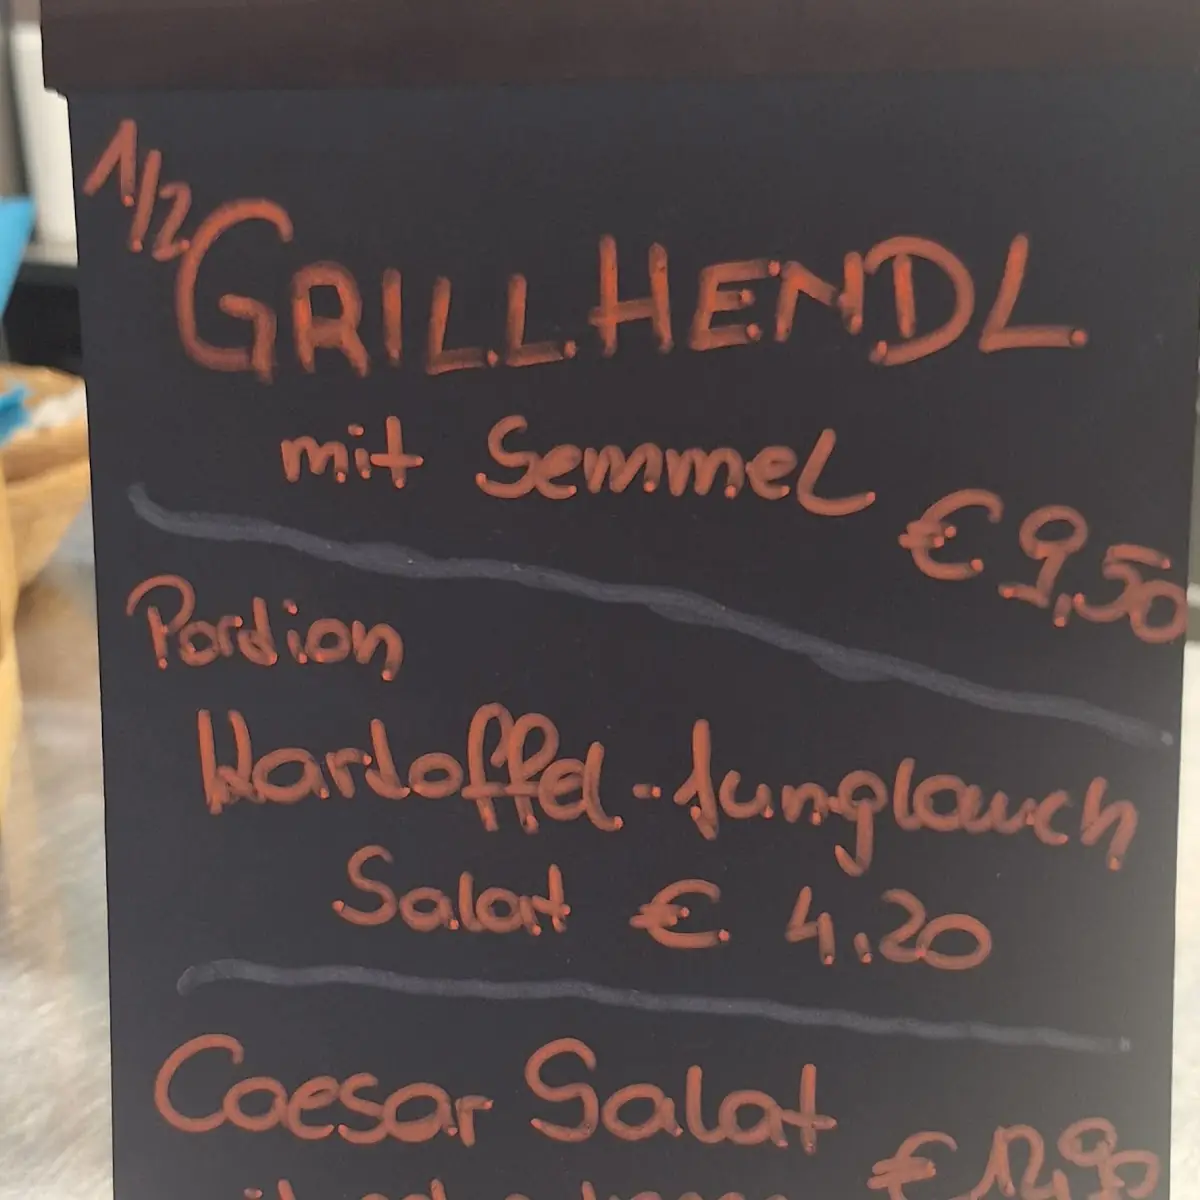 1/2 GRILLHENDL
mit Semmel
€ 9,50
Portion
Kartoffel-Junglauch
Salat € 4,20
Caesar Salat
€ 12,90